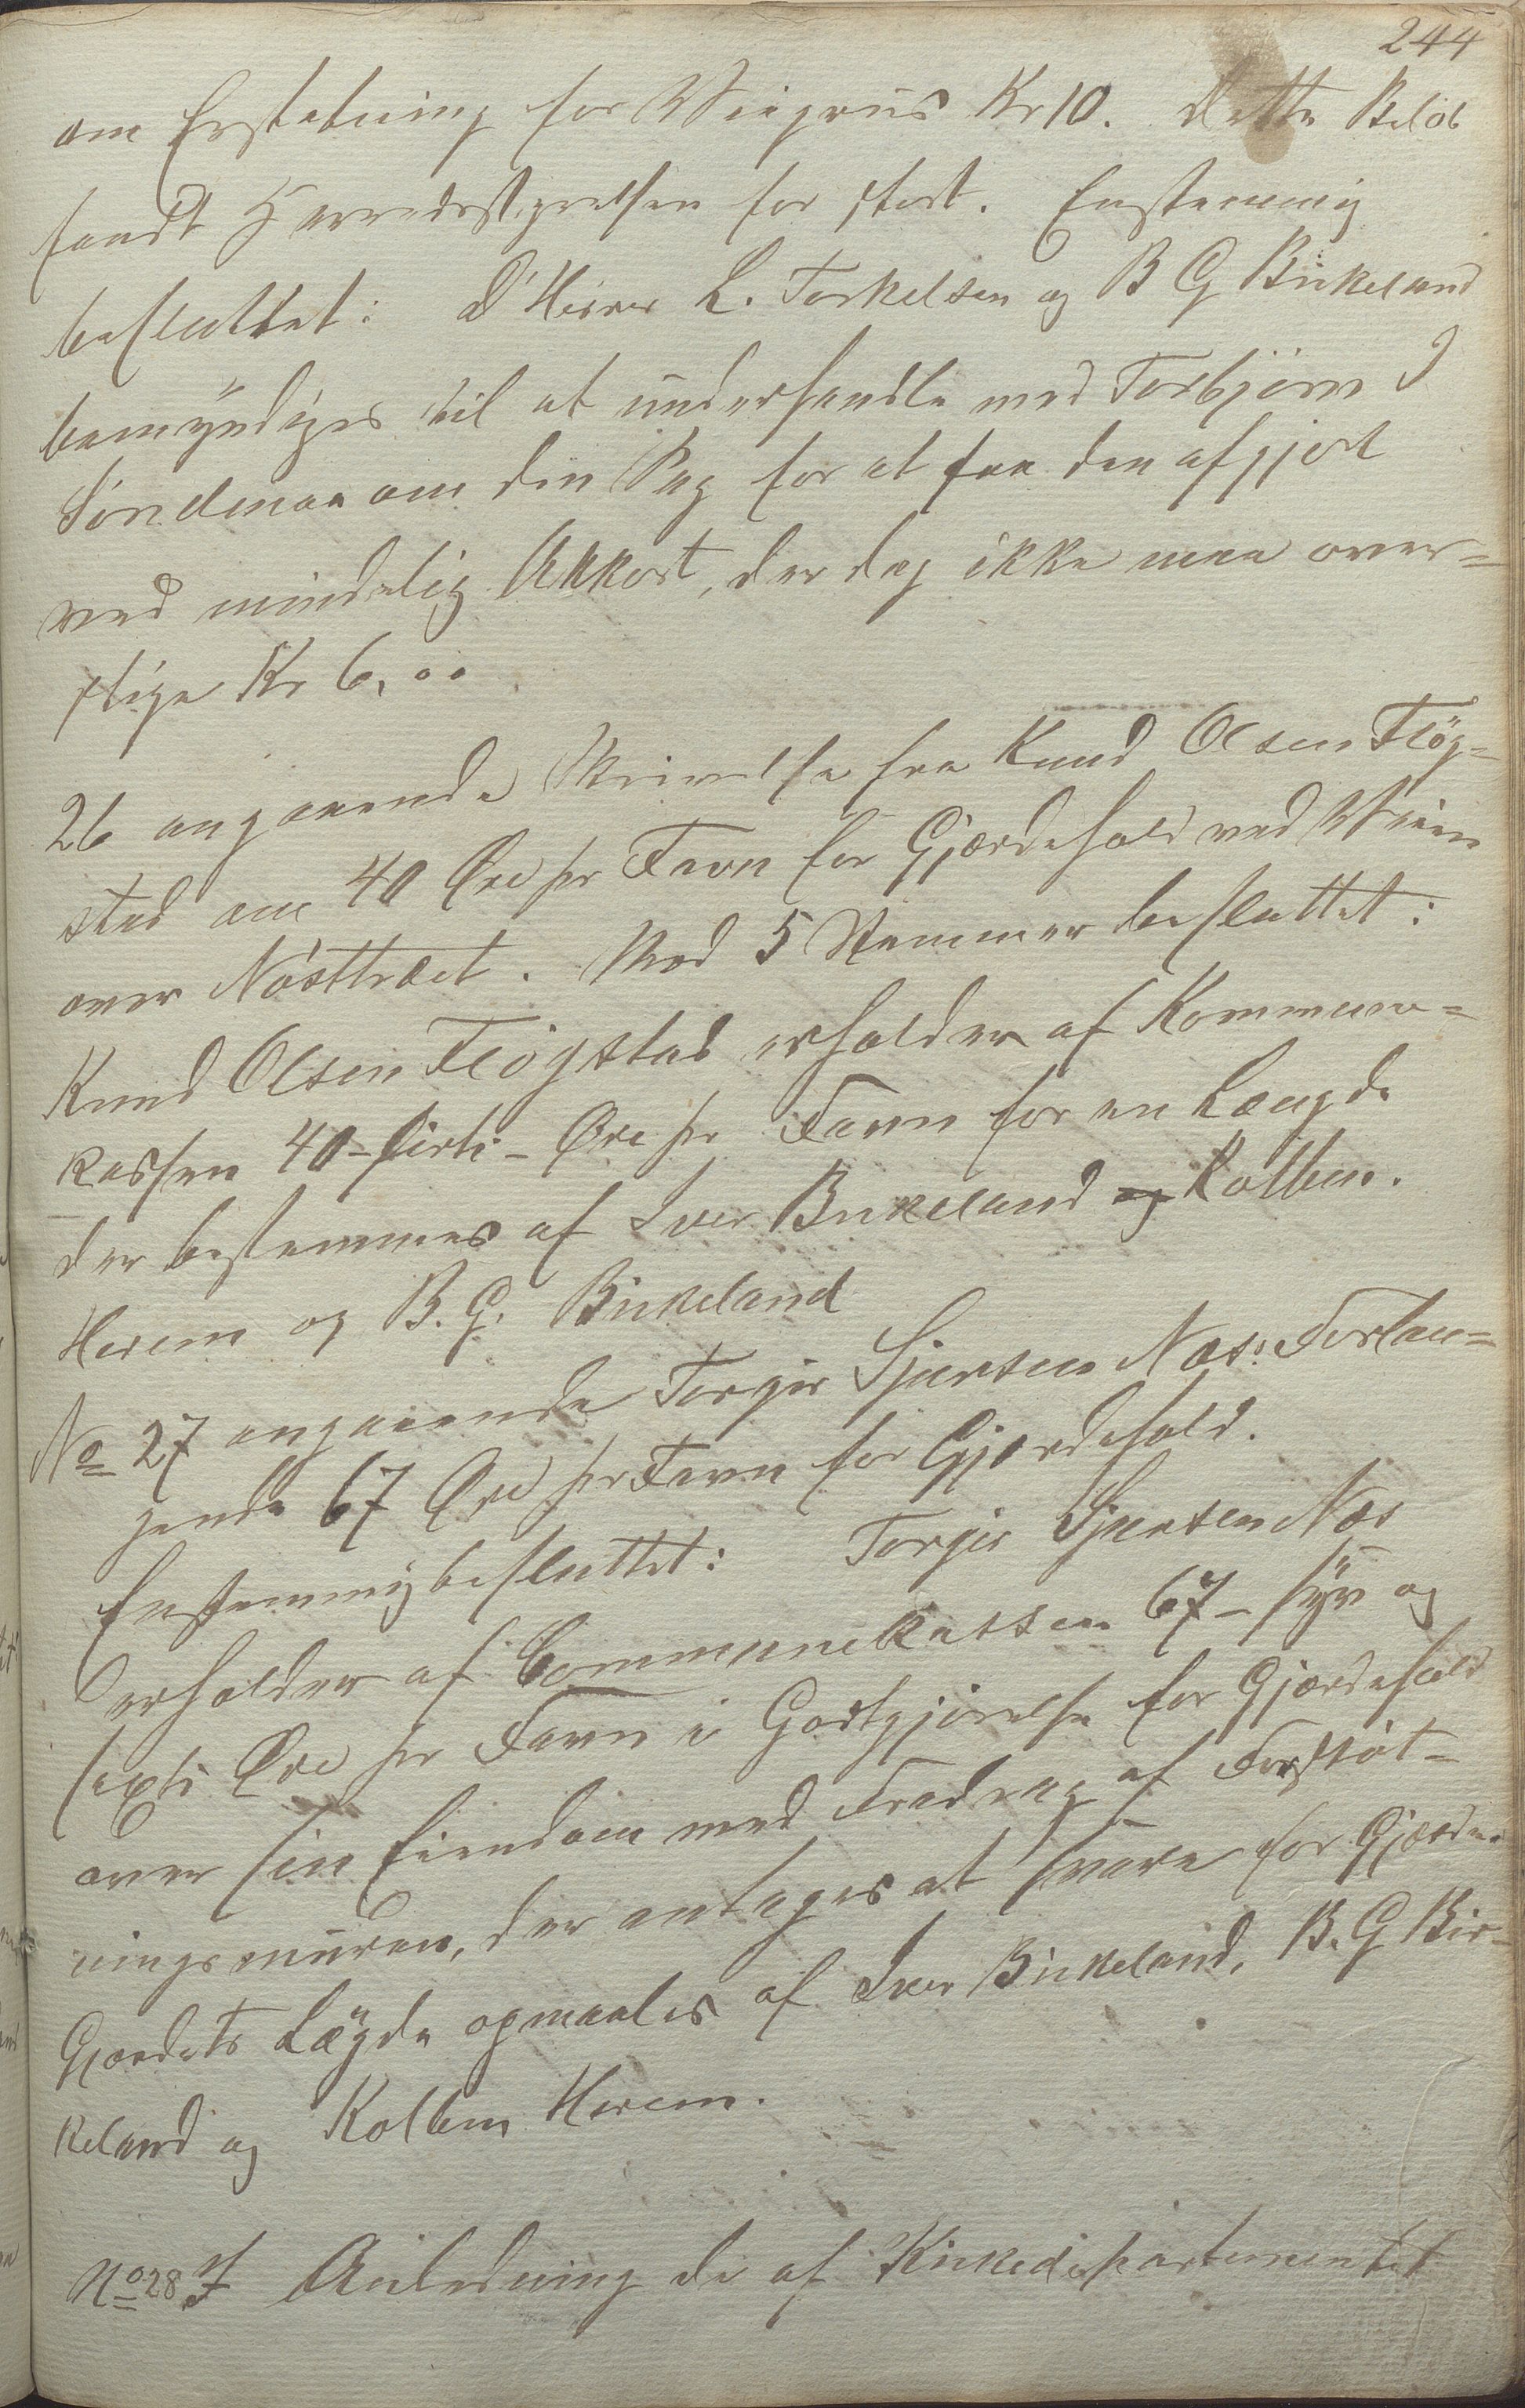 244
om Erstatning for Veigruus Kr 10. Dette Beløb
fandt Herredsstyrelsen for stort. Enstemmig
besluttet: D'Herrer L. Torkelsen og B G Birkeland
bemyndiges til at underhandle med Torbjørn I
Søndenaa om din Sag for at faa den afgjort
ved mindelig Akkort, der dog ikke maa over=
stige Kr 6,00
26 angaaende Skrivelse fra Knud Olsen Fløg=
stad om 40 Øre pr Favn for Gjærdehold ved Veien
over Nøsttræet. Med 5 Stemmer besluttet:
Knud Olsen Fløgstad erholder af Kommune=
kassen 40 - firti - Øre pr Favn for en Længde
der bestemmes af Iver Birkeland og Kolben.
Herem og B. G. Birkeland
No 27 angaaende Torger Sjursen Næs: Forlan=
gende 67 Øre pr Favn for Gjærdehold.
Enstemmig besluttet: Torger Sjursen Næs
erholder af Communekassen 67 - syv og
sexti Øre pr Favn i Godtgjørelse for Gjærdehold
over sin Eiendom med Fradrag af Forstøt=
ningsmuren, der antages at svare for Gjærde.
Gjærdets Lægde opmaales af Iver Birkeland, B. G Bir=
keland og Kolben Herem.
No 28 I Anledning de af Kirkedepartementet